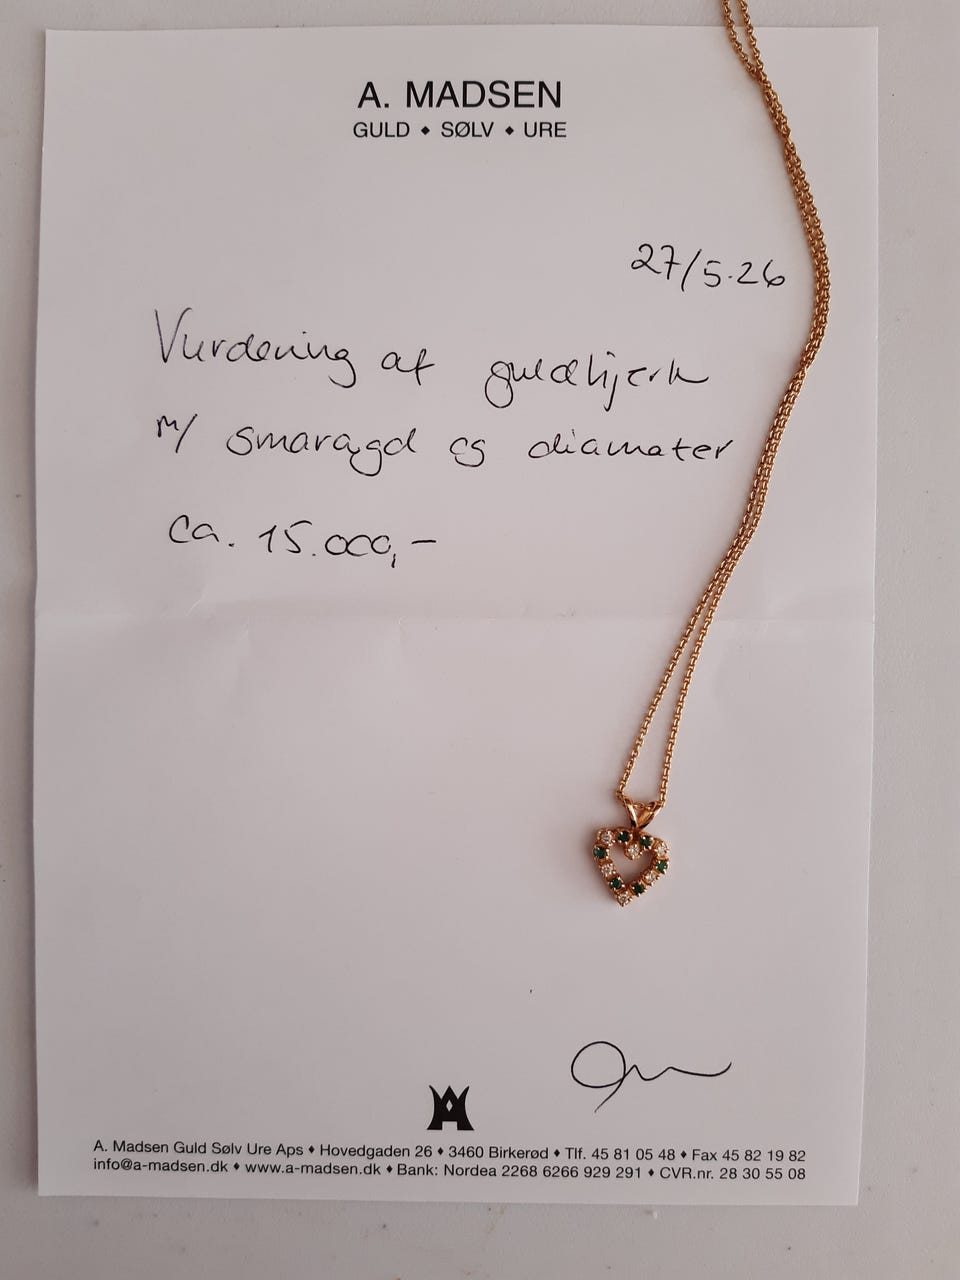 A. MADSEN
GULD ♦ SØLV ♦ URE
27/5-26
Vurdering af guldhjerte
m/ smaragd og diamater
ca. 15.000,-
A. Madsen Guld Sølv Ure Aps ♦ Hovedgaden 26 ♦ 3460 Birkerød ♦ Tlf. 45 81 05 48 ♦ Fax 45 82 19 82
info@a-madsen.dk ♦ www.a-madsen.dk ♦ Bank: Nordea 2268 6266 929 291 ♦ CVR.nr. 28 30 55 08